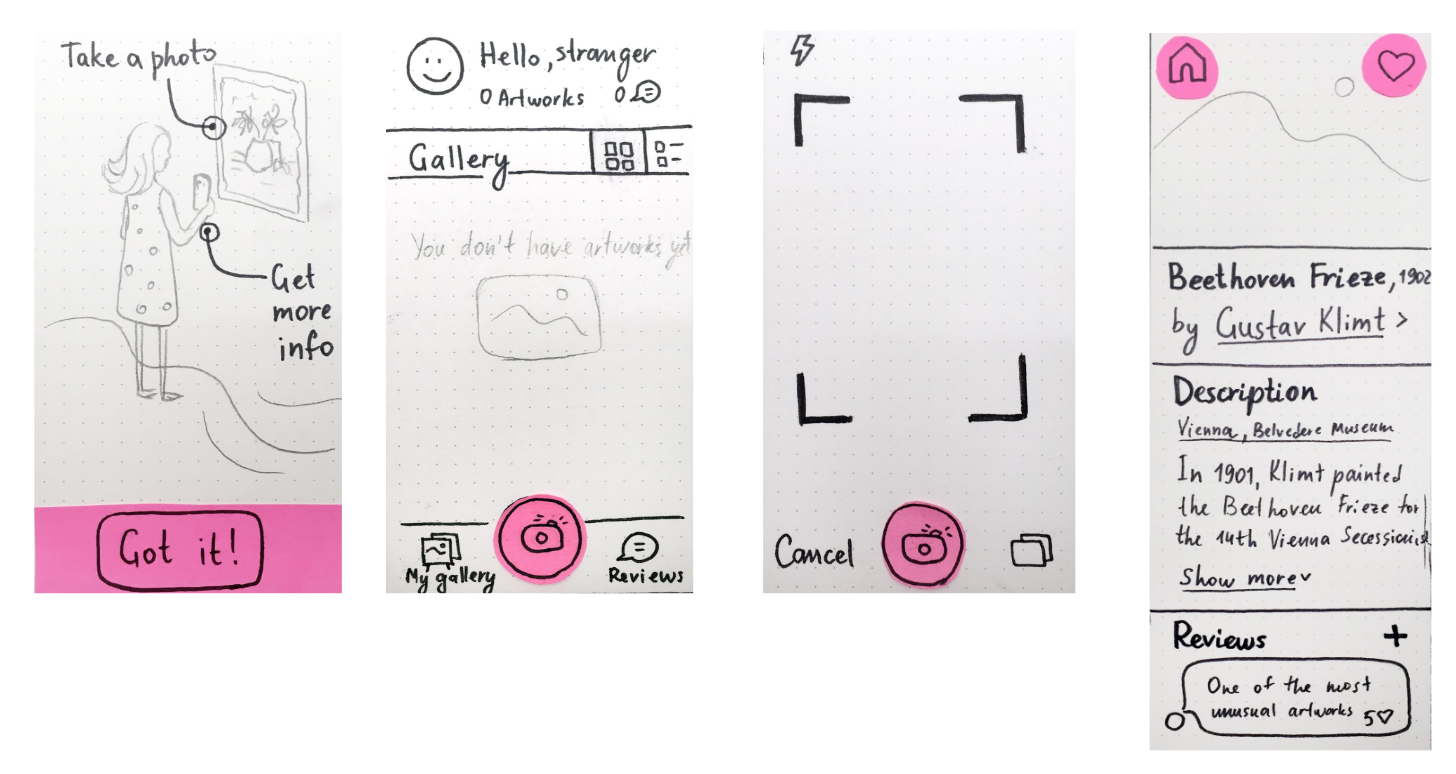 Take a photo
Get
more
info
Got it!
Hello, stranger
0 Artworks 0
Gallery
You don't have artworks yet
My gallery
Reviews
Cancel
Beethoven Frieze, 1902
by Gustav Klimt >
Description
Vienna, Belvedere Museum
In 1901, Klimt painted
the Beethoven Frieze for
the 14th Vienna Secessionist
Show more
Reviews +
One of the most
unusual artworks 5